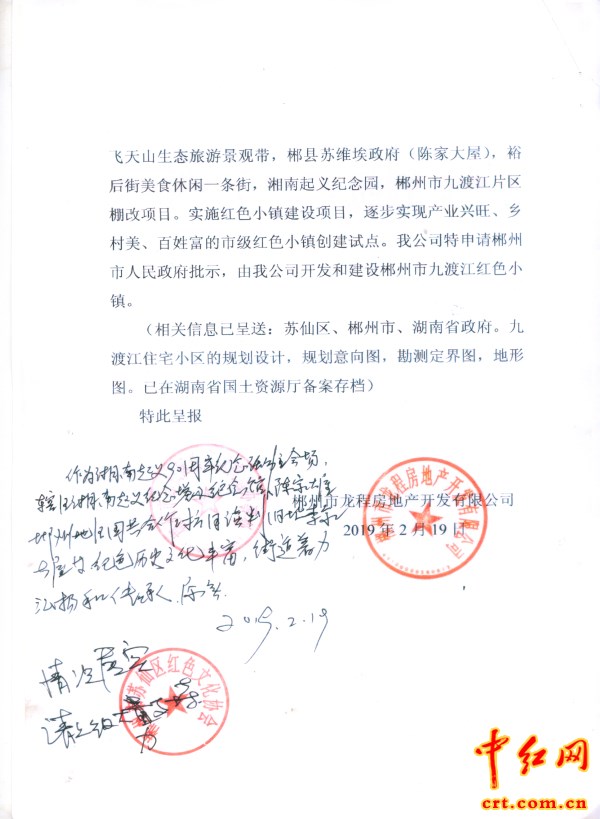 飞天山生态旅游景观带，郴县苏维埃政府（陈家大屋），裕
后街美食休闲一条街，湘南起义纪念园，郴州市九渡江片区
棚改项目。实施红色小镇建设项目，逐步实现产业兴旺、乡
村美、百姓富的市级红色小镇创建试点。我公司特申请郴州
市人民政府批示，由我公司开发和建设郴州市九渡江红色小
镇。
（相关信息已呈送：苏仙区、郴州市、湖南省政府。九
渡江住宅小区的规划设计，规划意向图，勘测定界图，地形
图。已在湖南省国土资源厅备案存档）
特此呈报
作为湘南起义90周年纪念活动主会场，
辖区湘南起义纪念塔及纪念馆、陈家大屋
郴州地区国共合作
红色历史文化丰富，街道着力
弘扬和传承。
郴州市龙程房地产开发有限公司
2019年2月19日
2019.2.19
情况属实
苏仙区红色文化协会
中红网
crt.com.cn